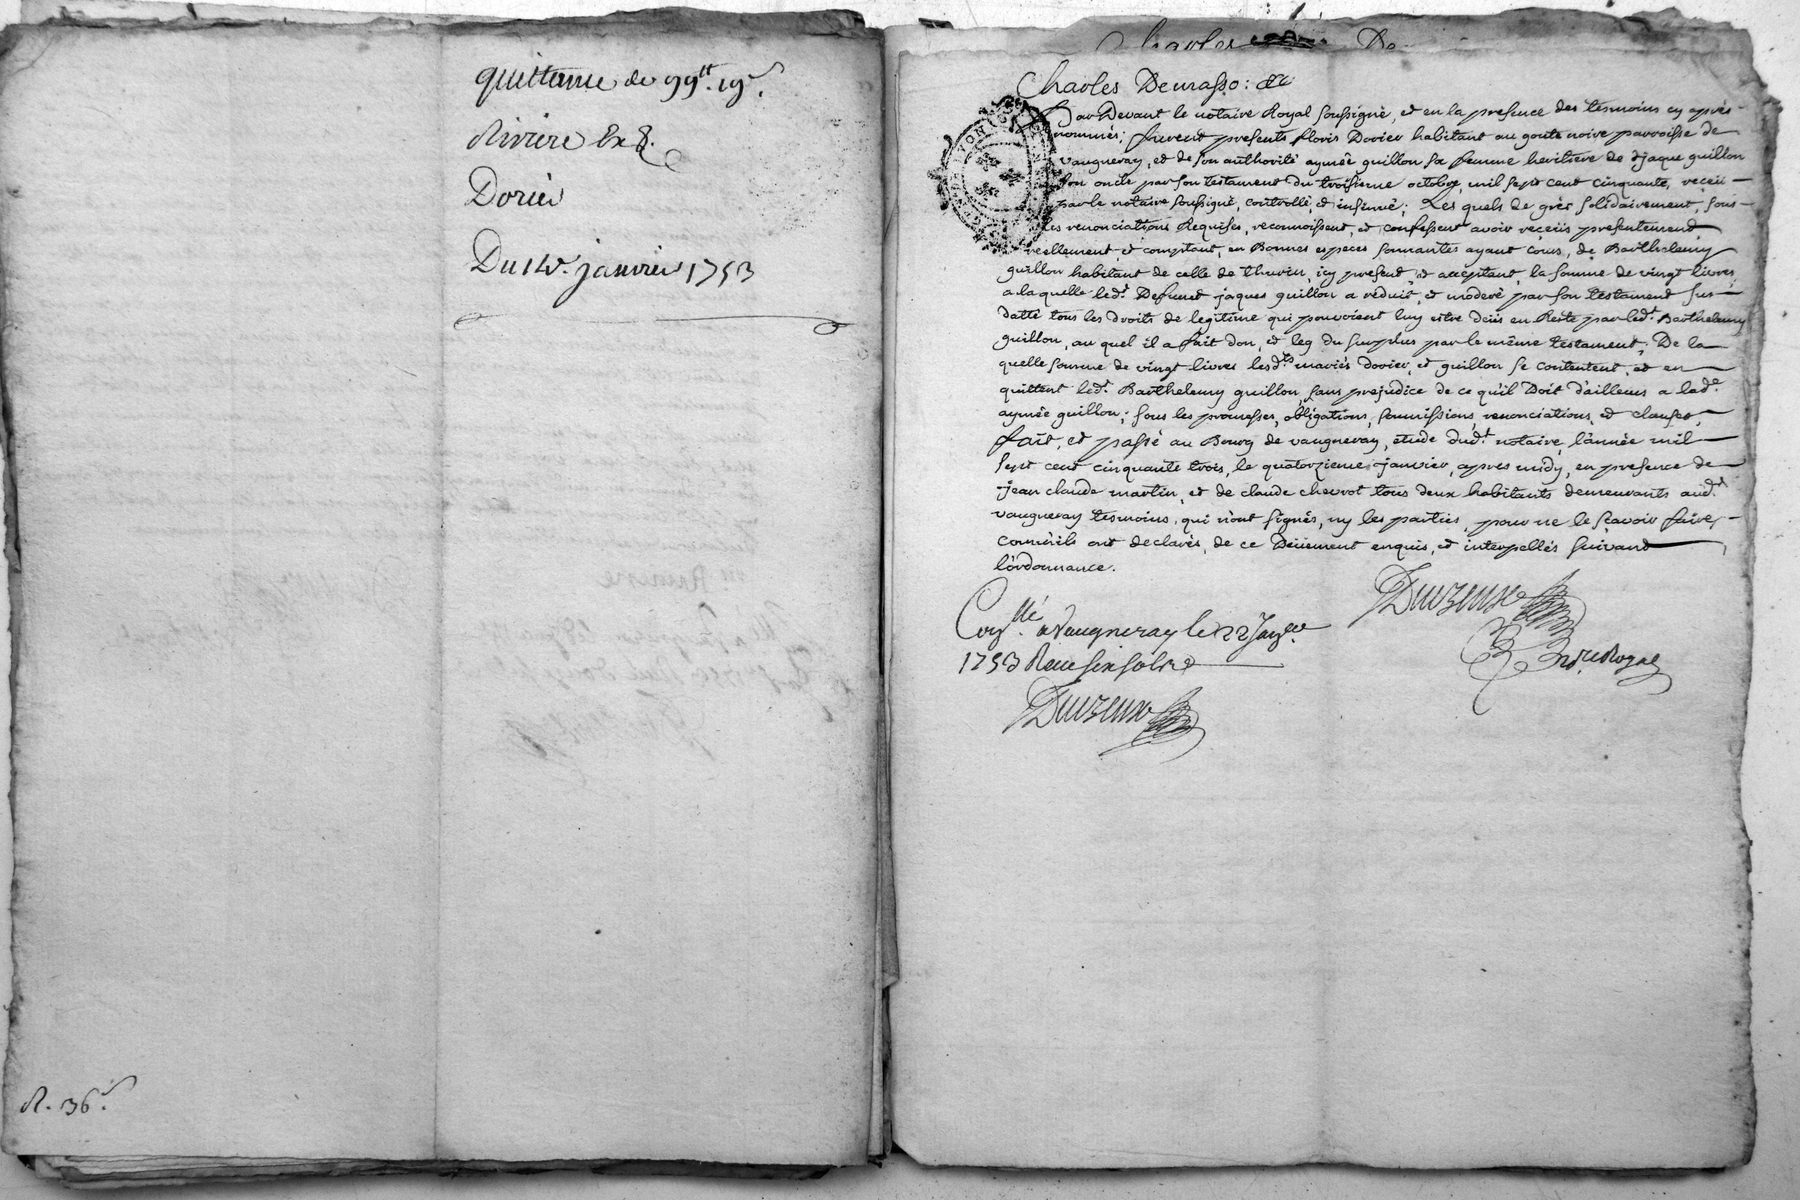 quittance de 99ᵗᵗ. 19ˢ.
Riviere
Dorier
Du 14e. janvier 1753
R. 36.ˢ
Charles De
Charles Demasso: &c
Par Devant le notaire Royal soussigné, et en la presence des tesmoins cy aprés
nommés; furent presents floris Dorier habitant au goute noire parroisse de
vaugneray, et de son authorité aymée guillon sa femme heritiere de Jaque guillon
son oncle par son testament du troisieme octobre, mil sept cent cinquante, reçeü
par le notaire soussigné, controllé, et insinué; Les quels de grés solidairement, sous
les renonciations Requises, reconnoissent, et confessent avoir reçeüs presentement
reellement, et comptant, en Bonnes especes sonnantes ayant cours, de Barthelemy
guillon habitant de celle de thurin, icy present et acceptant, la somme de vingt livres
a la quelle led.ᵗ Defunct jaques guillon a réduit, et moderé par son testament sus
datté tous les droits de legitime qui pouvoient luy estre deüs en Reste par led.ᵗ Barthelemy
guillon, au quel il a fait don, et leg du surplus par le même testament; De la
quelle somme de vingt livres lesd.ᵗˢ mariés dorier, et guillon se contentent, et en
quittent led.ᵗ Barthelemy guillon, sans prejudice de ce qu'il Doit d'ailleurs a lad.ᵉ
aymée guillon; sous les promesses, obligations, soumissions, renonciations, et clauses,
fait, et passé au Bourg de vaugneray, etude dud.ᵗ notaire, l'année mil
sept cent cinquante trois, le quatorzieme janvier, apres midy, en presence de
jean claude martin, et de claude chevrot tous deux habitants demeurants aud.ᵗ
vaugneray tesmoins, qui n'ont signés, ny les parties, pour ne le sçavoir faire,
comm'ils ont declarés, de ce Deüement enquis, et interpellés suivant
l'ordonnance.
Duvzeux
Con.ˡˡé a Vaugneray le 22 Janv.ᵉʳ
Nore Royal
1753 Reçu six sols
Duvzeux